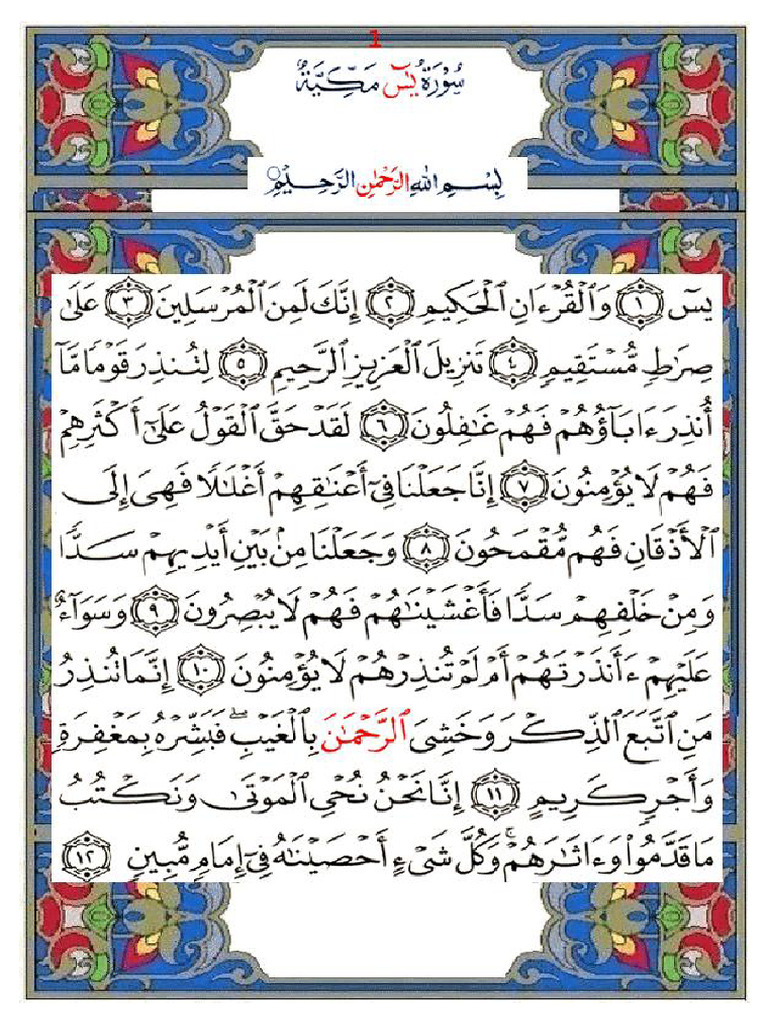 1
سُوْرَةُ يٰسٓ مَكِّيَّةٌ
بِسْمِ اللهِ الرَّحْمٰنِ الرَّحِيْمِ
يسٓ ١ وَالْقُرْءَانِ الْحَكِيمِ ٢ إِنَّكَ لَمِنَ الْمُرْسَلِينَ ٣ عَلَىٰ
صِرَٰطٍ مُّسْتَقِيمٍ ٤ تَنزِيلَ الْعَزِيزِ الرَّحِيمِ ٥ لِتُنذِرَ قَوْمًا مَّآ
أُنذِرَ ءَابَآؤُهُمْ فَهُمْ غَٰفِلُونَ ٦ لَقَدْ حَقَّ الْقَوْلُ عَلَىٰٓ أَكْثَرِهِمْ
فَهُمْ لَا يُؤْمِنُونَ ٧ إِنَّا جَعَلْنَا فِىٓ أَعْنَٰقِهِمْ أَغْلَٰلًا فَهِىَ إِلَى
الْأَذْقَانِ فَهُم مُّقْمَحُونَ ٨ وَجَعَلْنَا مِنۢ بَيْنِ أَيْدِيهِمْ سَدًّا
وَمِنْ خَلْفِهِمْ سَدًّا فَأَغْشَيْنَٰهُمْ فَهُمْ لَا يُبْصِرُونَ ٩ وَسَوَآءٌ
عَلَيْهِمْ ءَأَنذَرْتَهُمْ أَمْ لَمْ تُنذِرْهُمْ لَا يُؤْمِنُونَ ١٠ إِنَّمَا تُنذِرُ
مَنِ اتَّبَعَ الذِّكْرَ وَخَشِىَ الرَّحْمَٰنَ بِالْغَيْبِ ۖ فَبَشِّرْهُ بِمَغْفِرَةٍ
وَأَجْرٍ كَرِيمٍ ١١ إِنَّا نَحْنُ نُحْىِ الْمَوْتَىٰ وَنَكْتُبُ
مَا قَدَّمُوا۟ وَءَاثَٰرَهُمْ ۚ وَكُلَّ شَىْءٍ أَحْصَيْنَٰهُ فِىٓ إِمَامٍ مُّبِينٍ ١٢